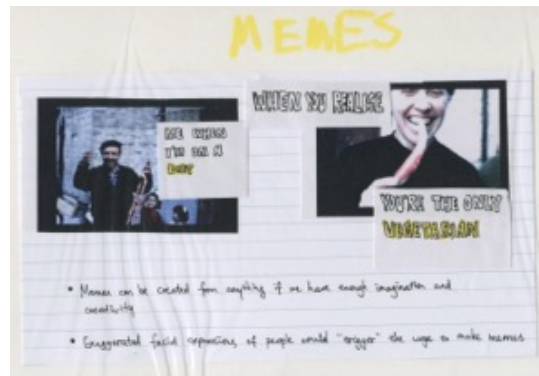 MEMES
ME WHEN
I'M ON A
DIET
WHEN YOU REALISE
YOU'RE THE ONLY
VEGETARIAN
• Memes can be created from anything if we have enough imagination and
creativity
• Exaggerated facial expressions of people would "trigger" the urge to make memes